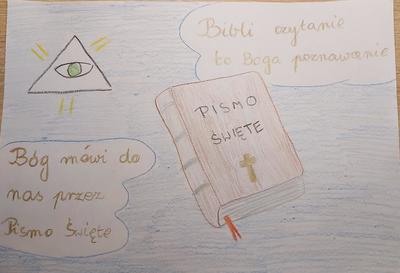 Bibli czytanie
to Boga poznawanie
PISMO
ŚWIĘTE
Bóg mówi do
nas przez
Pismo Święte